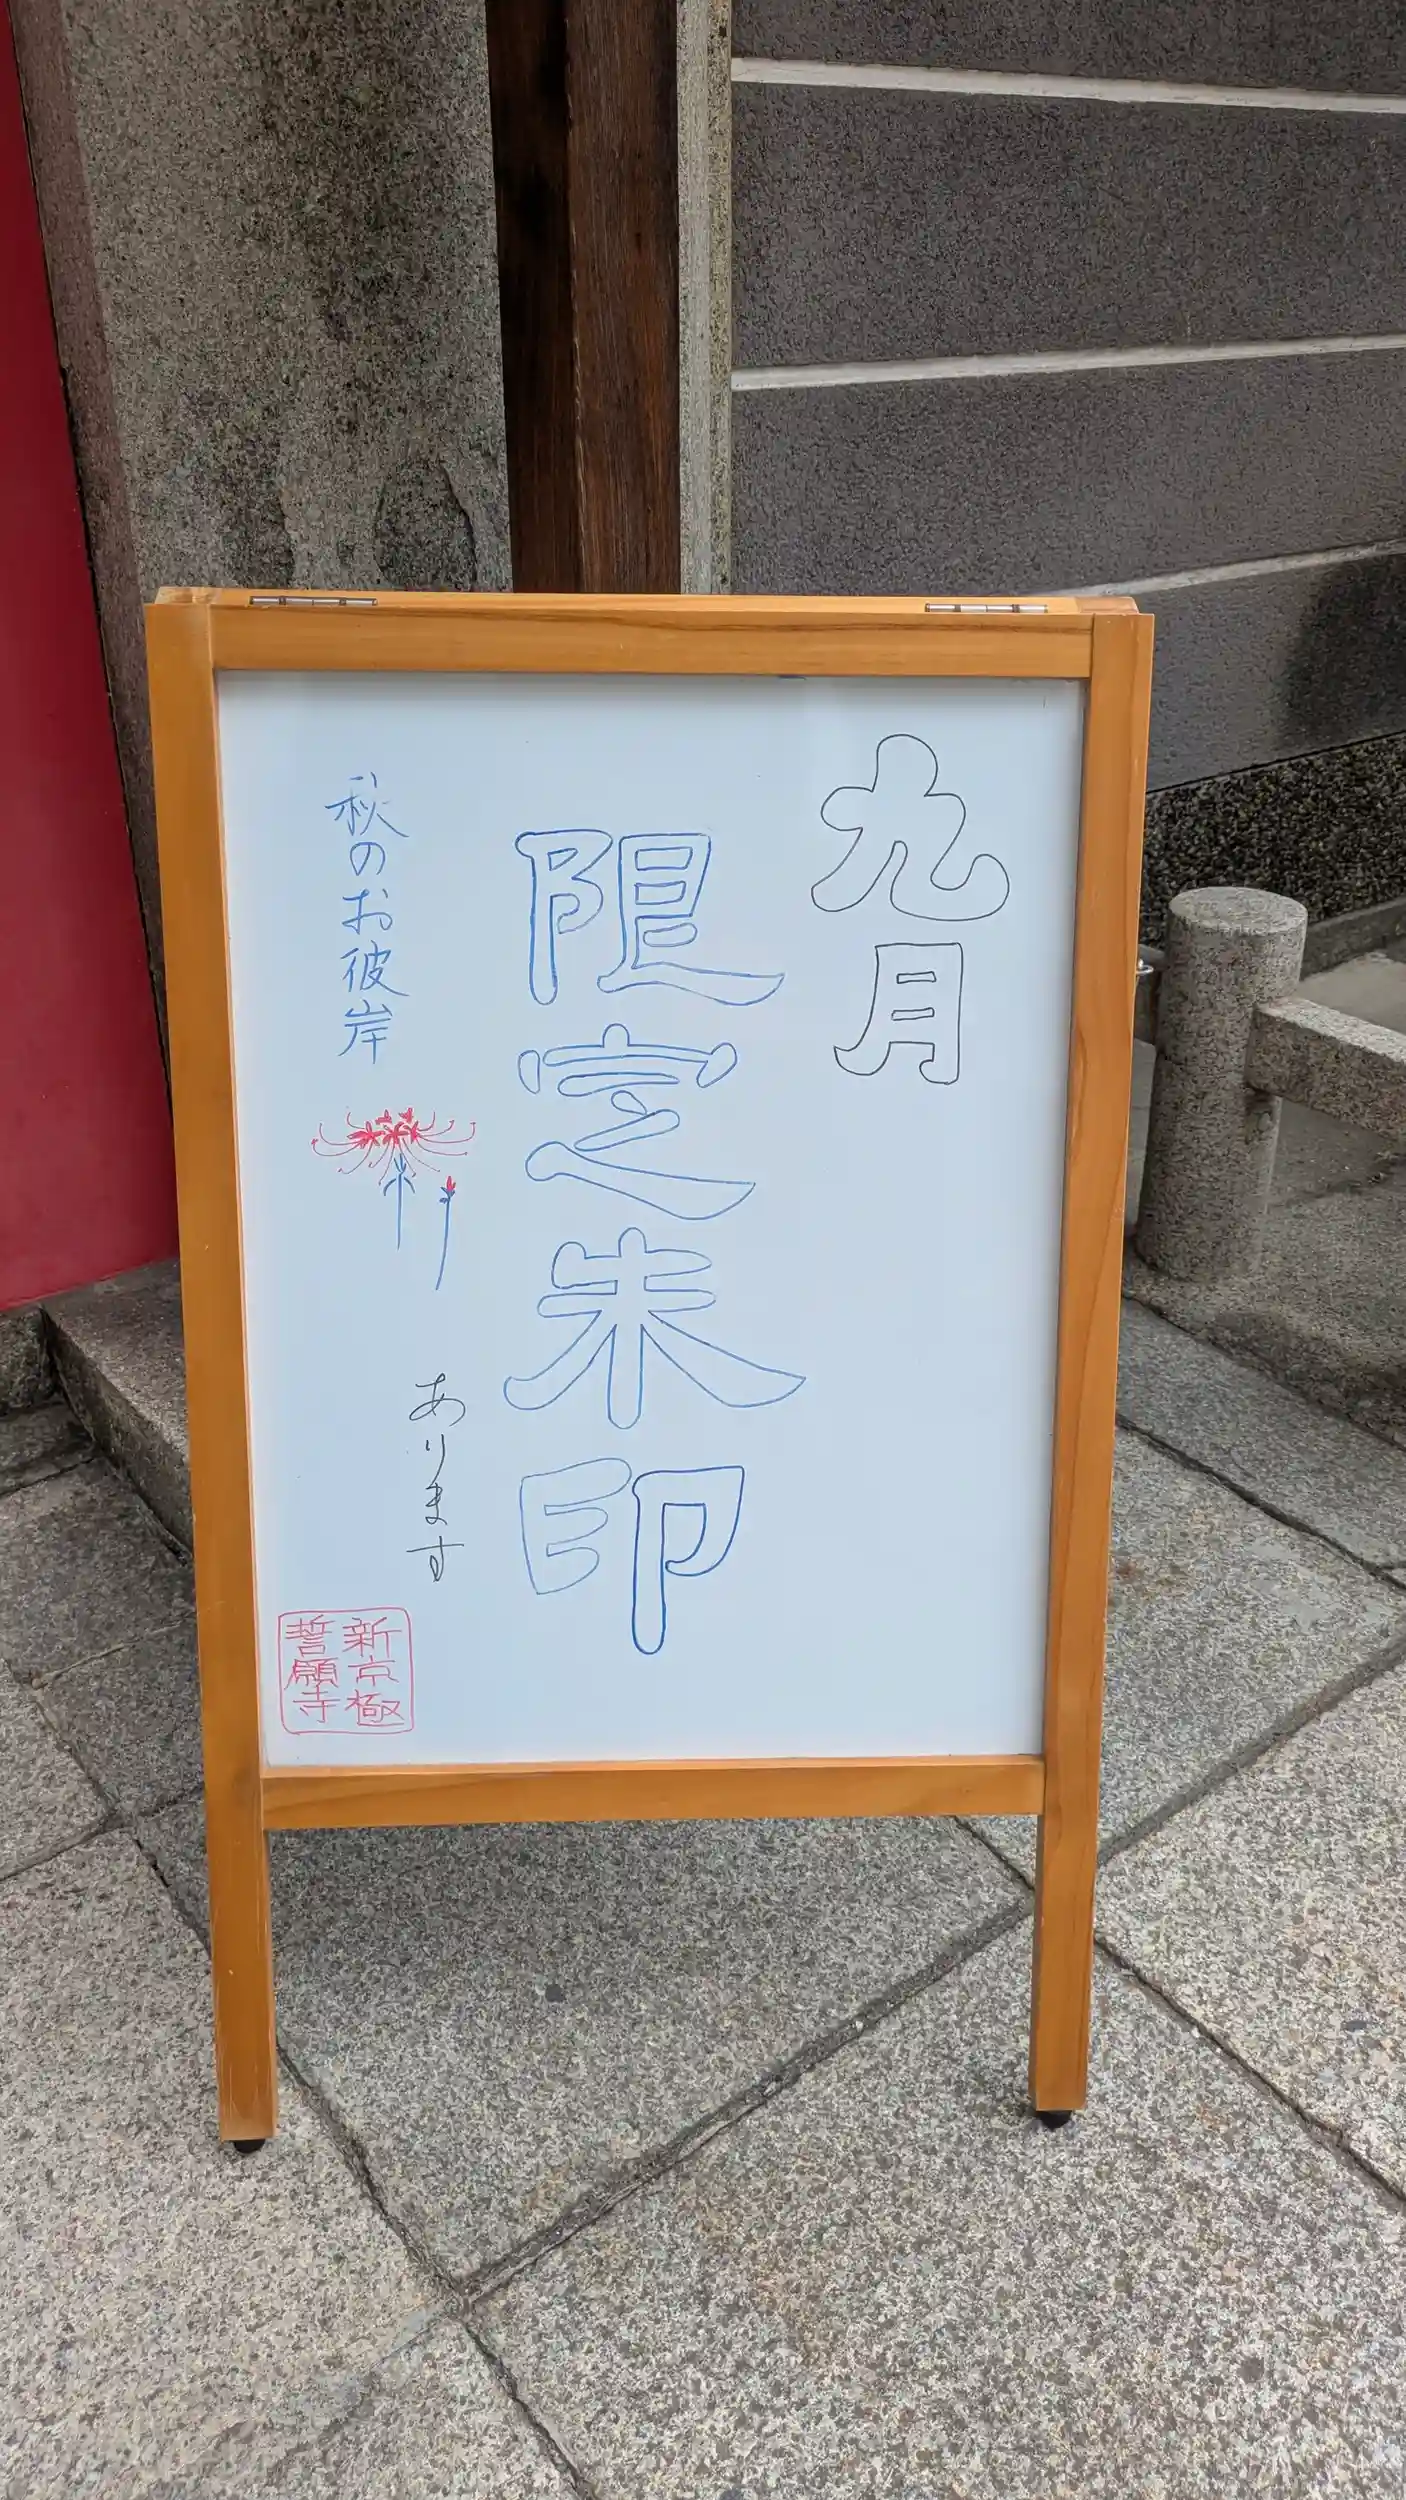 九月
限定朱印
秋のお彼岸
あります
新京極
誓願寺